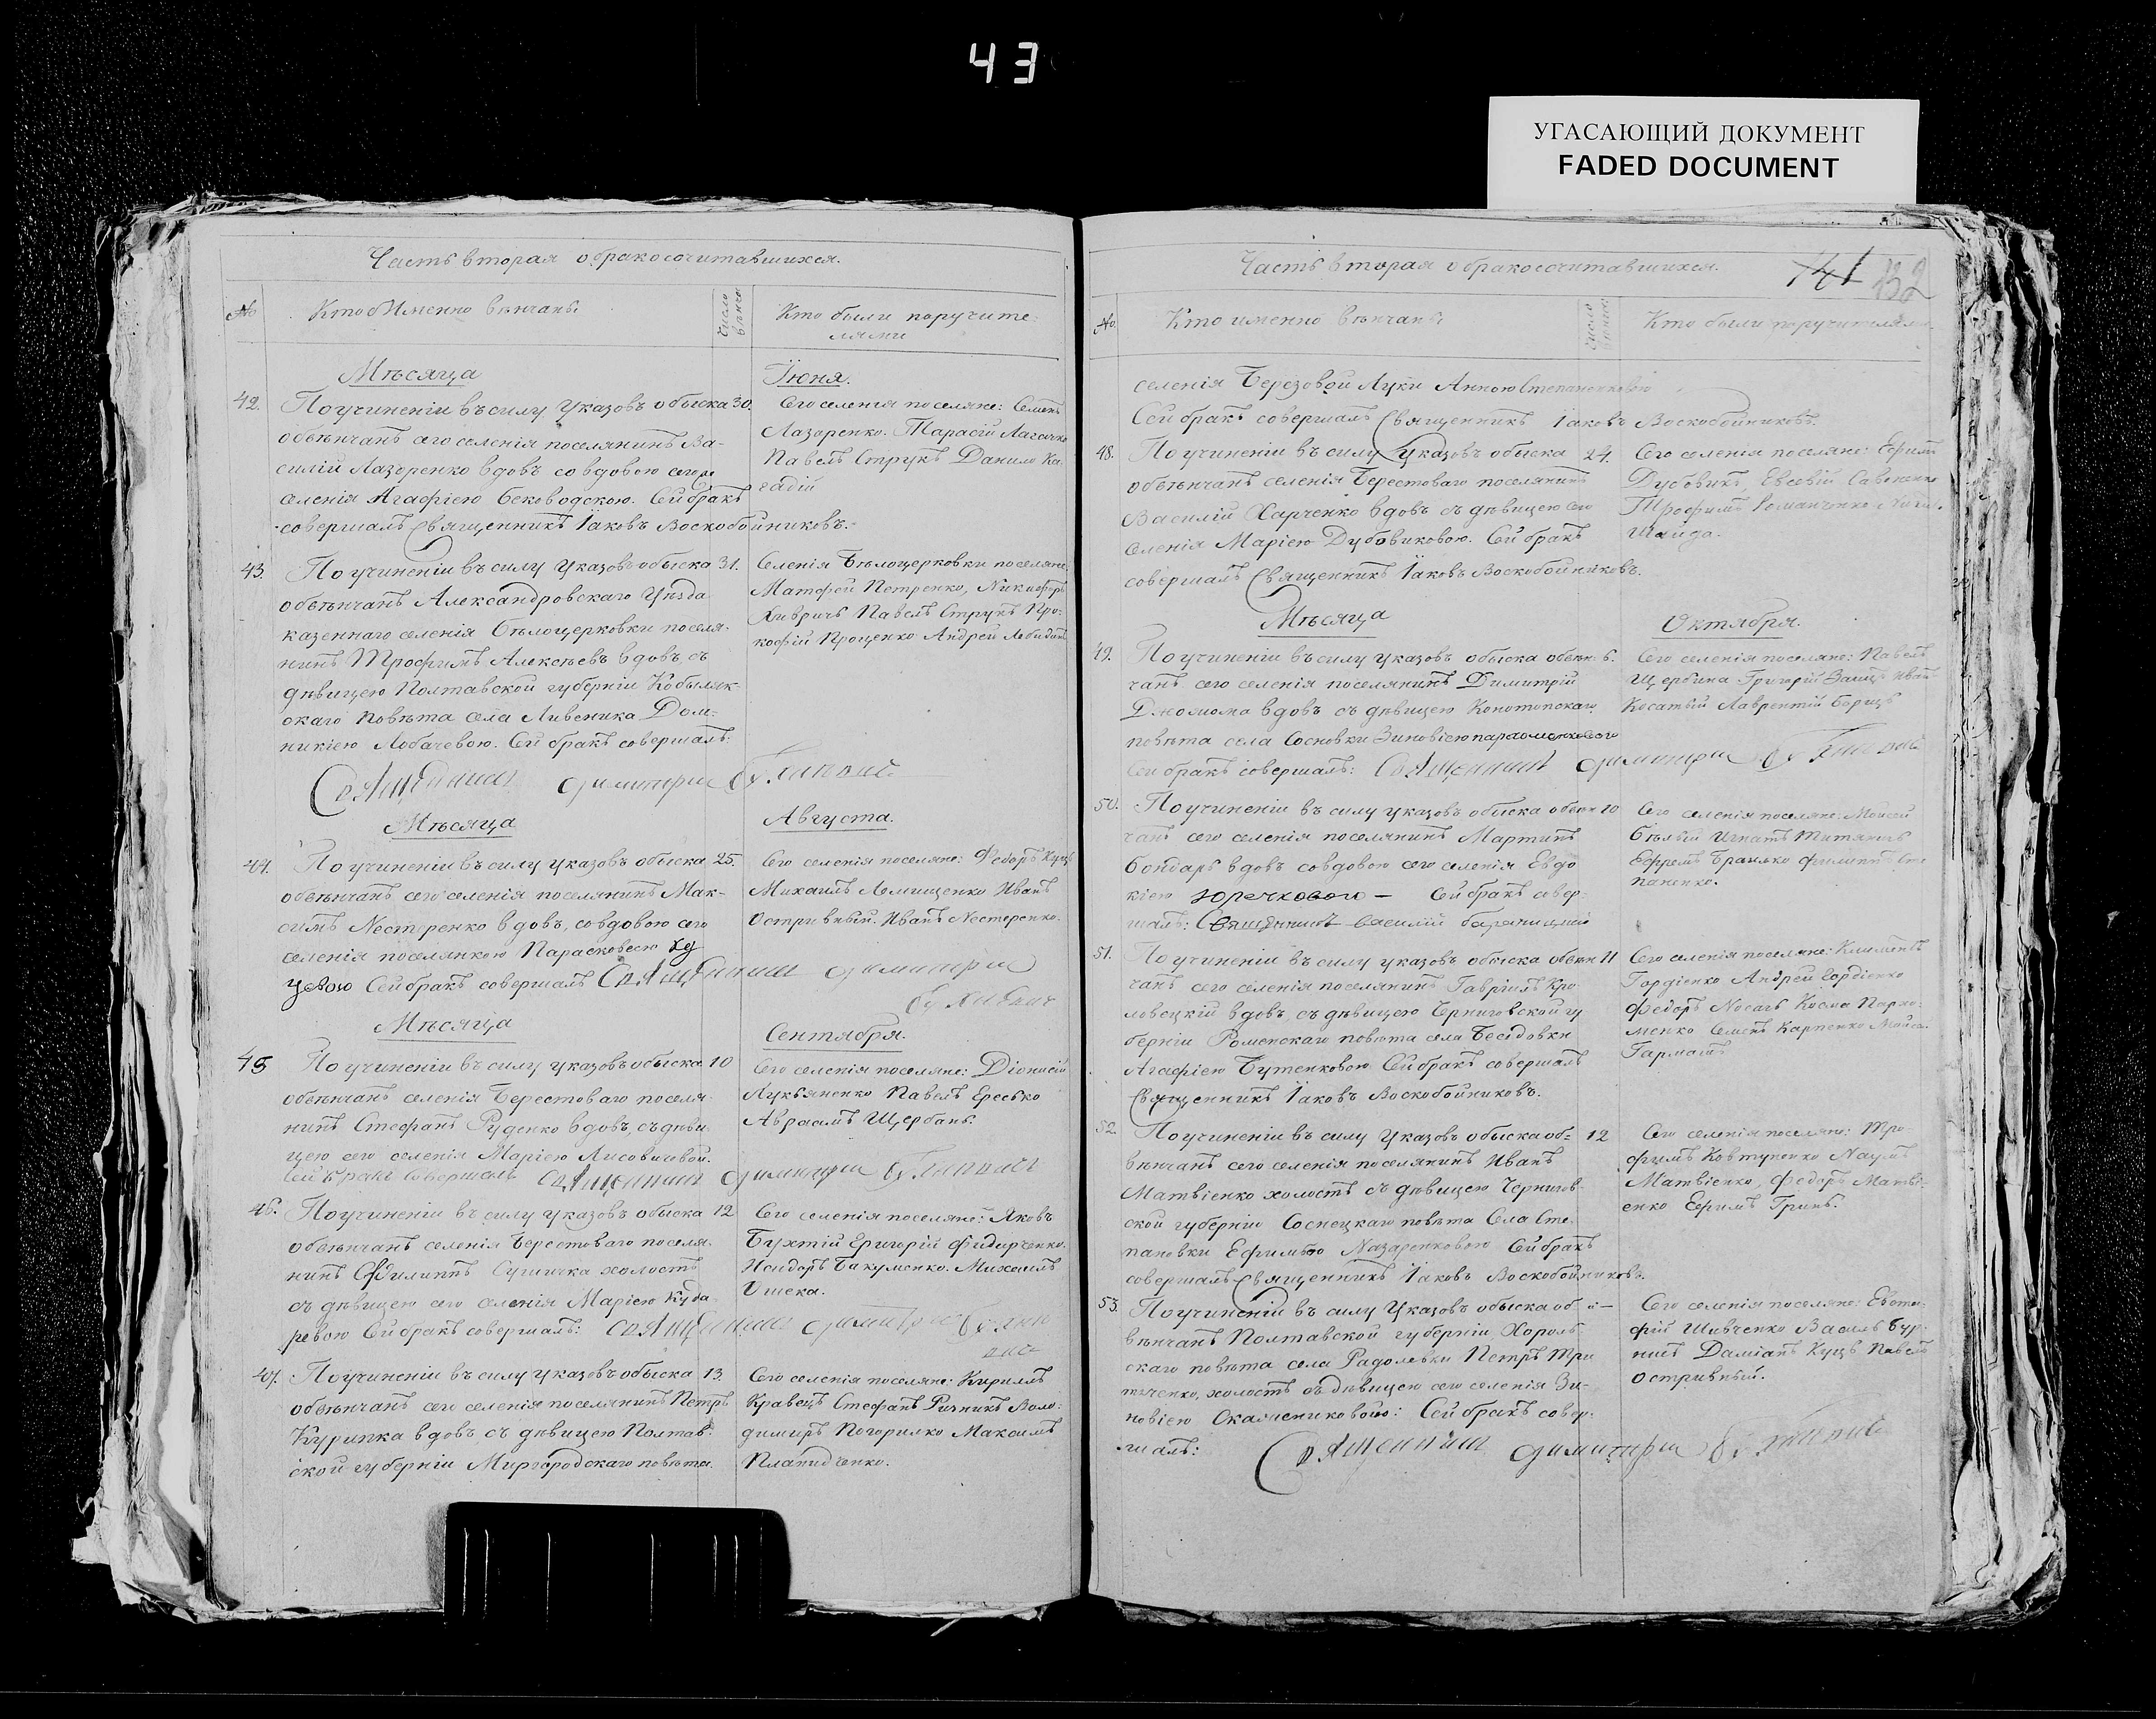 43
УГАСАЮЩИЙ ДОКУМЕНТ
FADED DOCUMENT
Часть вторая о бракосочитавшихся.
№
Кто Именно вѣнчаны
Число вѣнча
Кто были поручите
лями
Мѣсяца
Іюня.
42. По учиненіи въ силу Указовъ обыска 30.
обвѣнчанъ сего селенія поселянинъ Ва-
силій Лазоренко вдовъ со вдовою сего се
селенія Агафіею Беководскою. Сей бракъ
совершалъ Священникъ Іаковъ Воскобойниковъ.
Сего селенія поселяне: Семенъ
Лазоренко. Тарасій
Павелъ Струкъ Данило Ка
гадій
43. По учиненіи въ силу Указовъ обыска 31.
обвѣнчанъ Александровскаго Уѣзда
казеннаго селенія Бѣлоцерковки поселя-
нинъ Трофимъ Алексѣевъ вдовъ, съ
дѣвицею Полтавской губерніи Кобыляк-
скаго повѣта села Ливеника Дом-
никіею Лобачевою. Сей бракъ совершалъ:
Священникъ Димитрій
Селенія Бѣлоцерковки поселяне
Матфей Петренко, Никифоръ
Хивричъ Павелъ Струкъ Про-
кофій Проценко Андрей
Мѣсяца
Августа.
44. По учиненіи въ силу указовъ обыска 25.
обвѣнчанъ сего селенія поселянинъ Мак-
симъ Нестеренко вдовъ, со вдовою сего
селенія поселянкою Парасковеею Ку
цевою Сей бракъ совершалъ Священникъ Димитрій
Сего селенія поселяне: Федоръ Куцъ
Михаилъ Лемищенко Иванъ
Остривный. Иванъ Нестеренко.
Мѣсяца
Сентября.
45 По учиненіи въ силу указовъ обыска 10
обвѣнчанъ селенія Берестоваго поселя
нинъ Стефанъ Руденко вдовъ, съ дѣви
цею сего селенія Маріею Лисовиивой.
Сей бракъ совершалъ Священникъ Димитрій
Сего селенія поселяне: Діонисій
Лукьяненко Павелъ Ересько
Авраамъ Щербань.
46. По учиненіи въ силу указовъ обыска 12
обвѣнчанъ селенія Берестоваго поселя
нинъ Филиппъ Сушичка холостъ
съ дѣвицею сего селенія Маріею Куха
ревою Сей бракъ совершалъ: Священникъ Димитрій
Сего селенія поселяне: Яковъ
Бухтій Григорій Фидирченко.
Исидоръ Бакуменко. Михаилъ
Ошека.
47. По учиненіи въ силу указовъ обыска 13.
обвѣнчанъ сего селенія поселянинъ Петръ
Курипка вдовъ съ дѣвицею Полтав-
ской губерніи Миргородскаго повѣта.
Сего селенія поселяне: Кирилъ
Кравецъ Стефанъ Ризникъ Воло-
димиръ Погорилко Максимъ
Плапидченко.
Часть вторая о бракосочитавшихся.
141 132
№.
Кто именно вѣнчаны
Число
Кто были поручителями
селенія Березовой Луки Анною Степаненковою
Сей бракъ совершалъ Священникъ Іаковъ Воскобойниковъ.
48. По учиненіи въ силу Указовъ обыска 24.
обвѣнчанъ селенія Берестоваго поселянинъ
Василій Харченко вдовъ съ дѣвицею сего
селенія Маріею Дубовиковою. Сей бракъ
совершалъ Священникъ Іаковъ Воскобойниковъ.
Сего селенія поселяне: Ефимъ
Дубовикъ, Евсевій Савоненко
Трофимъ Романченко
Шайда.
Мѣсяца
Октября.
49. По учиненіи въ силу указовъ обыска обвѣн- 6.
чанъ сего селенія поселянинъ Димитрій
Джолома вдовъ съ дѣвицею Конотопскаго
повѣта села Сосновки Зиновіею пархоменковою
Сей бракъ совершалъ: Священникъ Димитрій
Сего селенія поселяне: Павелъ
Щербина Григорій Заяцъ Иванъ
Косатый Лаврентій Борицъ
50. По учиненіи въ силу указовъ обыска обвѣн 10
чанъ сего селенія поселянинъ Мартинъ
Бондарь вдовъ со вдовою сего селенія Евдо
кіею Юречковою — Сей бракъ совер-
шалъ: Священникъ василій
Сего селенія поселяне: Моисей
Бѣлый Игнатъ Титянъ
Ефремъ Браилко филиппъ Сте
паненко.
51. По учиненіи въ силу указовъ обыска обвѣн 11
чанъ сего селенія поселянинъ Гавріилъ Кро
ловецкій вдовъ, съ дѣвицею Черниговской гу
берніи Роменскаго повѣта села Бесѣдовки
Агафіею Бутенковою Сей бракъ совершалъ
Священникъ Іаковъ Воскобойниковъ.
Сего селенія поселяне: Климентъ
Гордіенко Андрей Гордіенко
Федоръ Носачъ Косма Пархо-
менко Семенъ Карпенко Мойсе.
Гармашъ
52. По учиненіи въ силу Указовъ обыска об= 12
вѣнчанъ сего селенія поселянинъ Иванъ
Матвіенко холостъ съ дѣвицею Чернигов-
ской губерніи Соснецкаго повѣта Села Сте-
пановки Ефимьею Назаренковою Сей бракъ
совершалъ Священникъ Іаковъ Воскобойниковъ.
Сего селенія поселяне: Тро-
фимъ Ковтуненко Наумъ
Матвіенко, Федоръ Матві-
енко Ефимъ Гринь.
53. По учиненіи въ силу Указовъ обыска об
вѣнчанъ Полтавской губерніи Хороль
скаго повѣта села Радолевки Петръ Три
тяченко, холостъ съ дѣвицею сего селенія Зи-
новіею Окаменниковою: Сей бракъ совер-
шалъ: Священникъ Димитрій
Сего селенія поселяне: Евста-
фій Шивченко Василь Бур-
Даміанъ Куцъ Павелъ
Остривный.